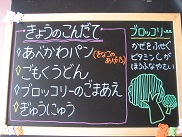 きょうのこんだて
◇あべかわパン(きなこのあげパン)
◇ごもくうどん
◇ブロッコリーのごまあえ
◇ぎゅうにゅう
ブロッコリー
かぜをふせぐ
ビタミンCが
ほうふなやさい